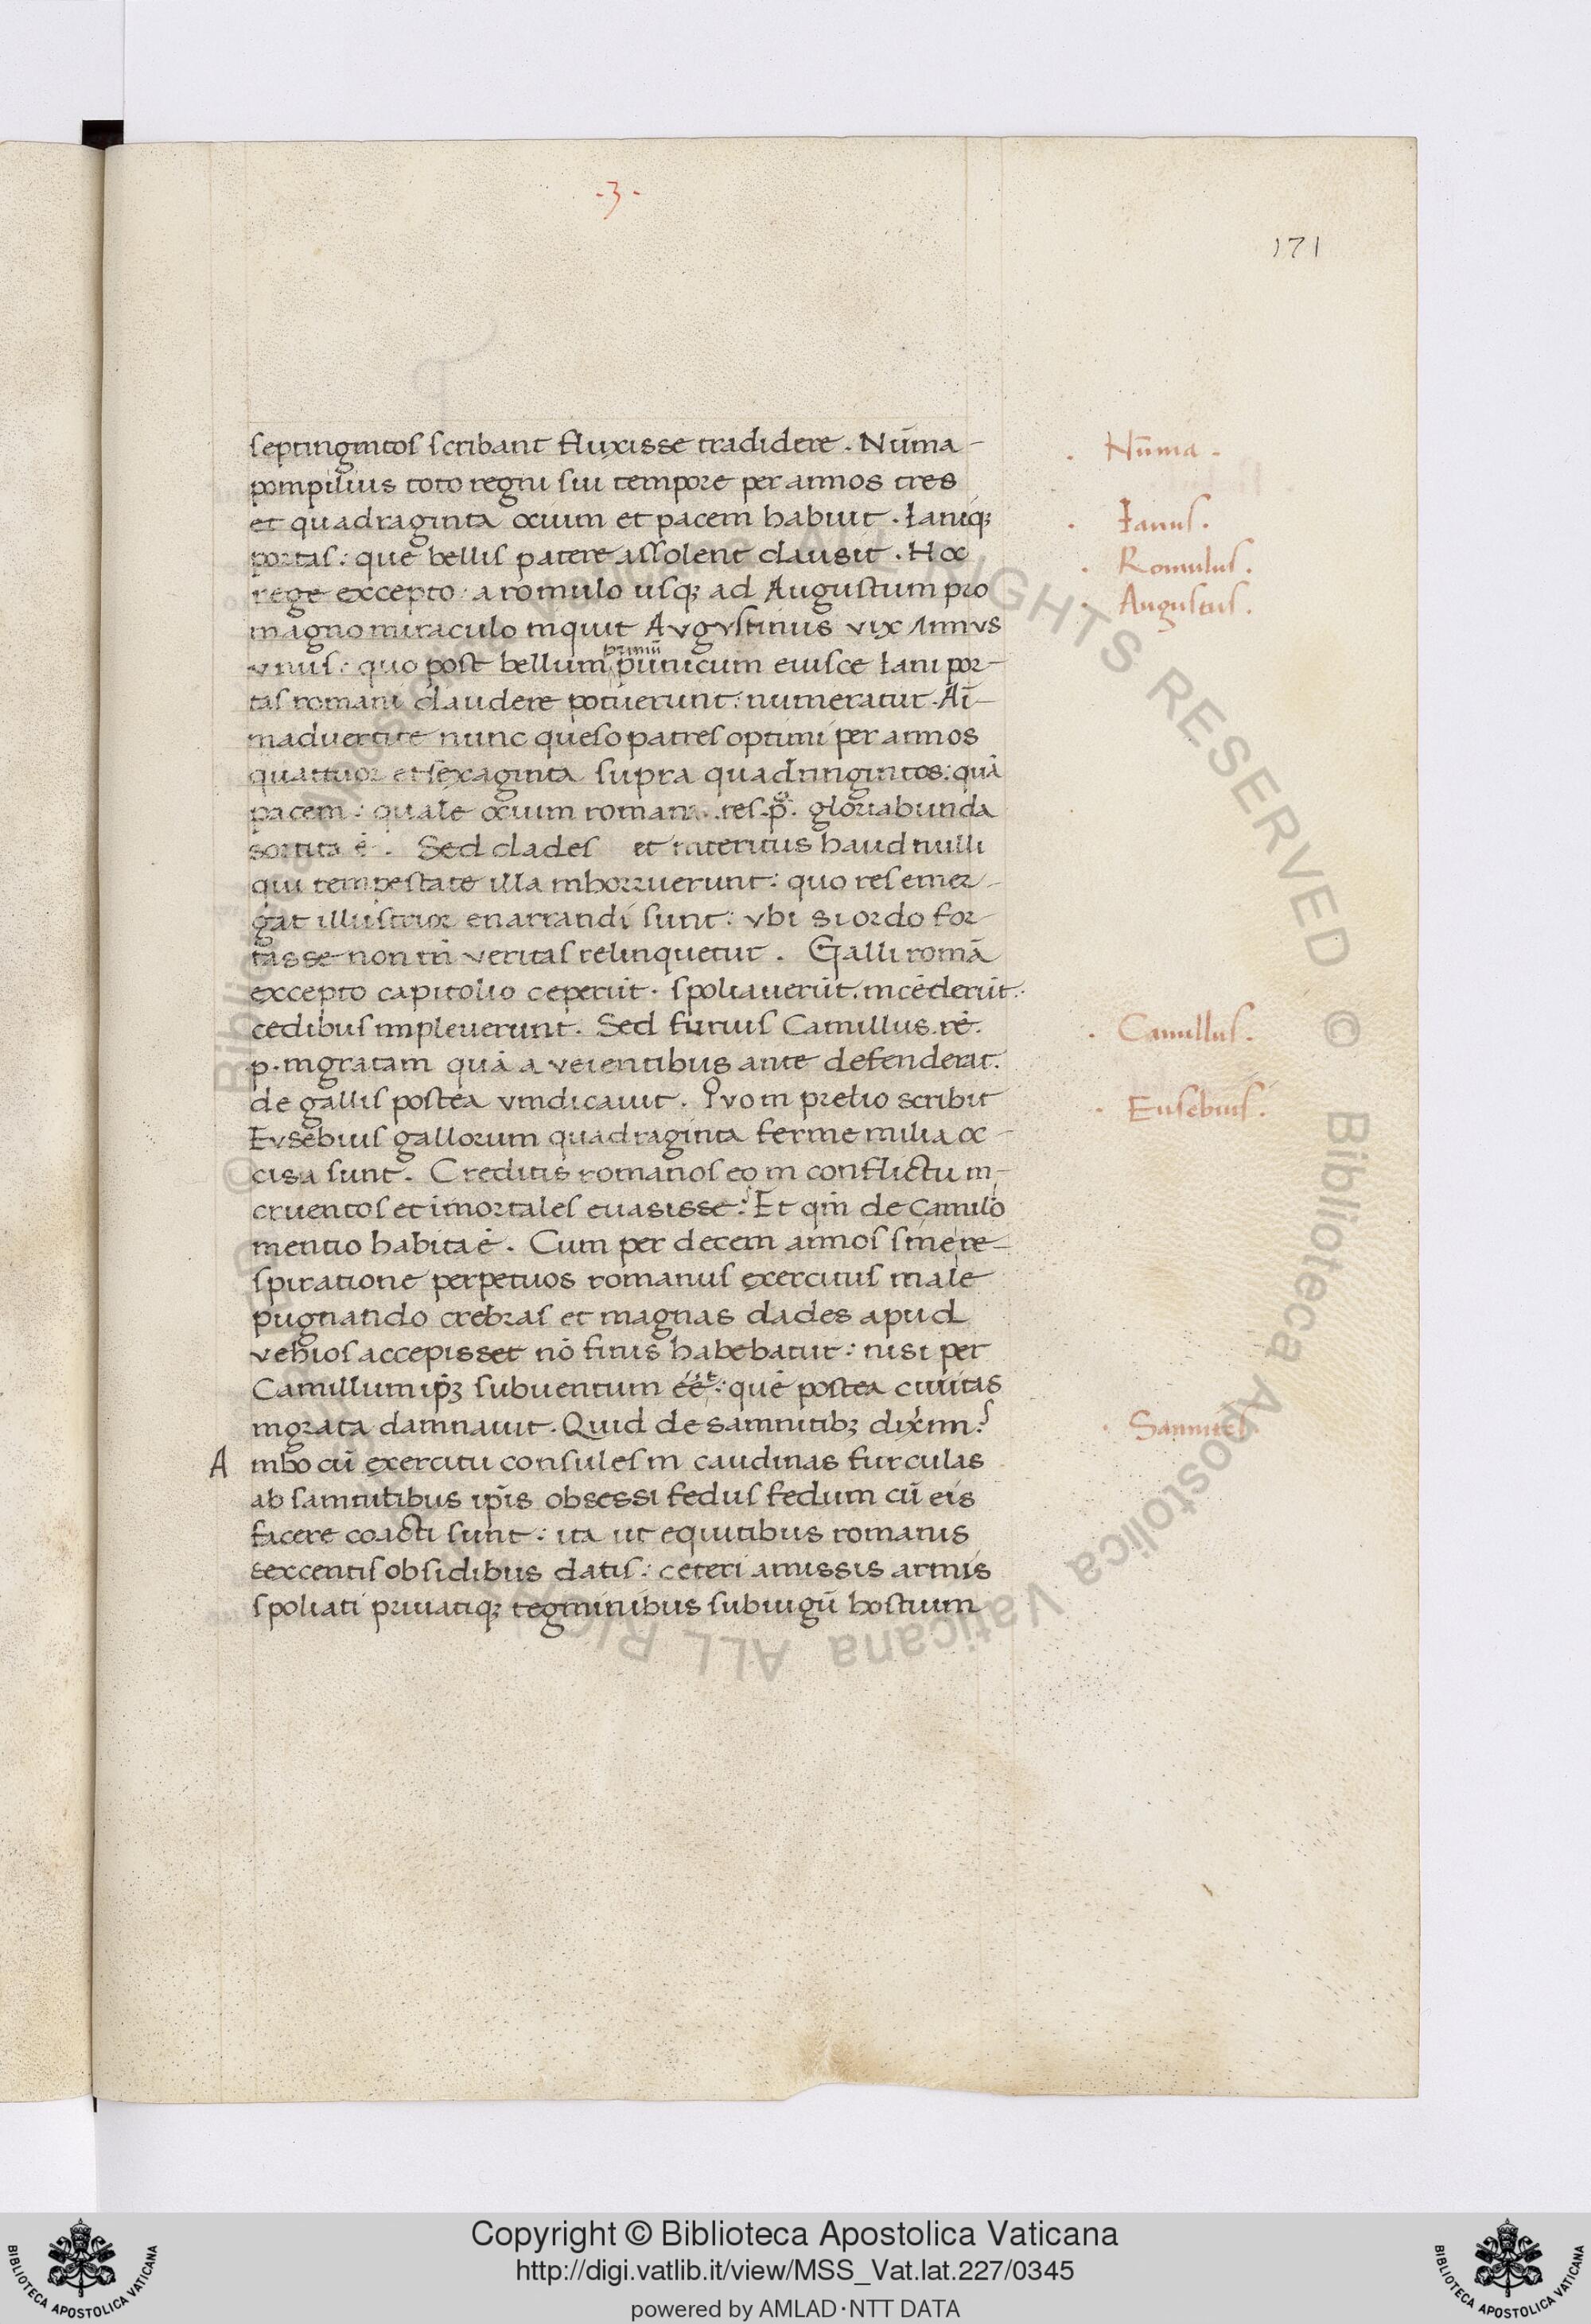 -3-
171
septingintos scribant fluxisse tradidere. Nūma-
pompilius toto regni sui tempore per annos tres
et quadraginta ocium et pacem habuit. Ianiqꝫ
portas: que bellis patere assolent clausit. Hoc
rege excepto: a romulo usqꝫ ad Augustum pro
magno miraculo inquit Avgvstinus vix Annvs
vnus: quo post bellum primū punicum eiusce Iani por-
tas romani claudere potuerunt: numeratur. Aī-
maduertite nunc queso patres optimi per annos
quattuor et sexaginta supra quadringintos: quā
pacem: quale ocium romana .res.p. gloriabunda
sortita ē. Sed clades et interitus haud nulli
qui tempestate illa inhorruerunt: quo res emer-
gat illustrior enarrandi sunt: vbi si ordo for-
tasse non tn̄ veritas relinquetur. Galli romā
excepto capitolio ceperūt. spoliauerūt. incēderūt.
cedibus impleuerunt. Sed furius Camillus .rē.
p. ingratam quā a veientibus ante defenderat.
de gallis postea vindicauit. Qvo in prelio scribit
Evsebius gallorum quadraginta ferme milia oc-
cisa sunt. Creditis romanos eo in conflictu in-
cruentos et imortales euasisse? Et qm̄ de Camilo
mentio habita ē. Cum per decem annos sine re-
spiratione perpetuos romanus exercitus male
pugnando crebras et magnas clades apud
vehios accepisset nō finis habebatur: nisi per
Camillum ip̄ꝫ subuentum eēt: quē postea ciuitas
ingrata damnauit. Quid de samnitibꝫ dixim?
A mbo cū exercitu consules in caudinas furculas
ab samnitibus ip̄is obsessi fedus fedum cū eis
facere coacti sunt: ita ut equitibus romanis
sexcentis obsidibus datis: ceteri amissis armis
spoliati priuatiqꝫ tegminibus sub iugū hostium
. Nūma .
. Ianus .
. Romulus .
. Augustus .
. Camillus .
. Eusebius .
. Samnites
© Biblioteca Apostolica Vaticana ALL RIGHTS RESERVED © Biblioteca Apostolica Vaticana ALL RIGHTS RESERVED
Copyright © Biblioteca Apostolica Vaticana
http://digi.vatlib.it/view/MSS_Vat.lat.227/0345
powered by AMLAD·NTT DATA
BIBLIOTECA APOSTOLICA VATICANA
BIBLIOTECA APOSTOLICA VATICANA